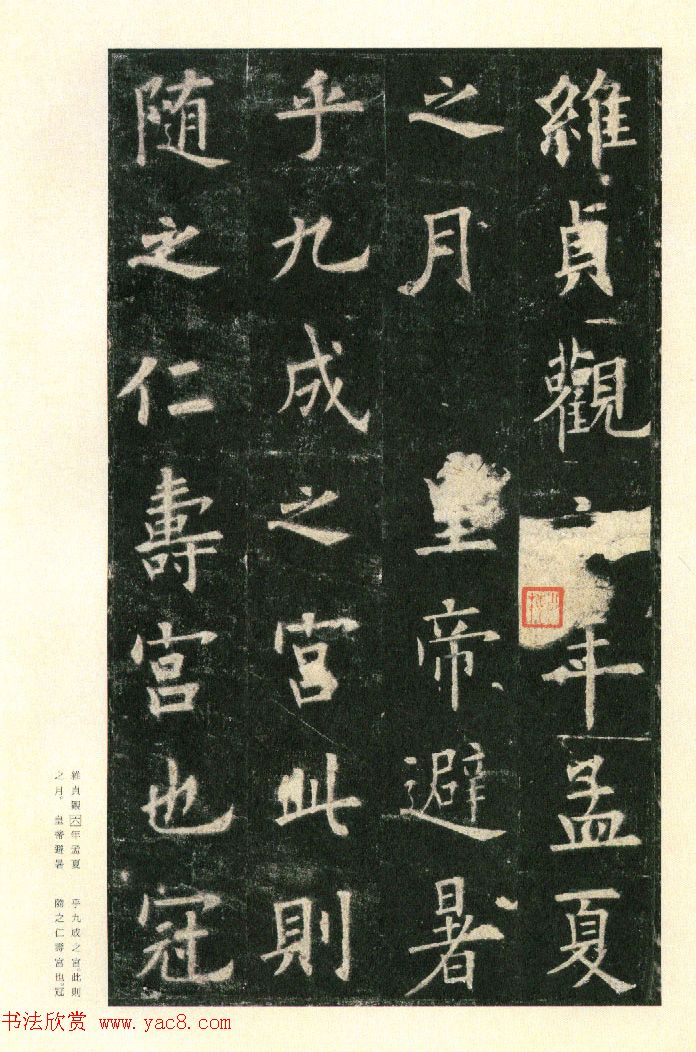 維貞觀六年孟夏
之月皇帝避暑
乎九成之宮此則
随之仁壽宮也冠
維貞觀六年孟夏
之月。皇帝避暑
乎九成之宮此則
隨之仁壽宮也。冠
书法欣赏 www.yac8.com